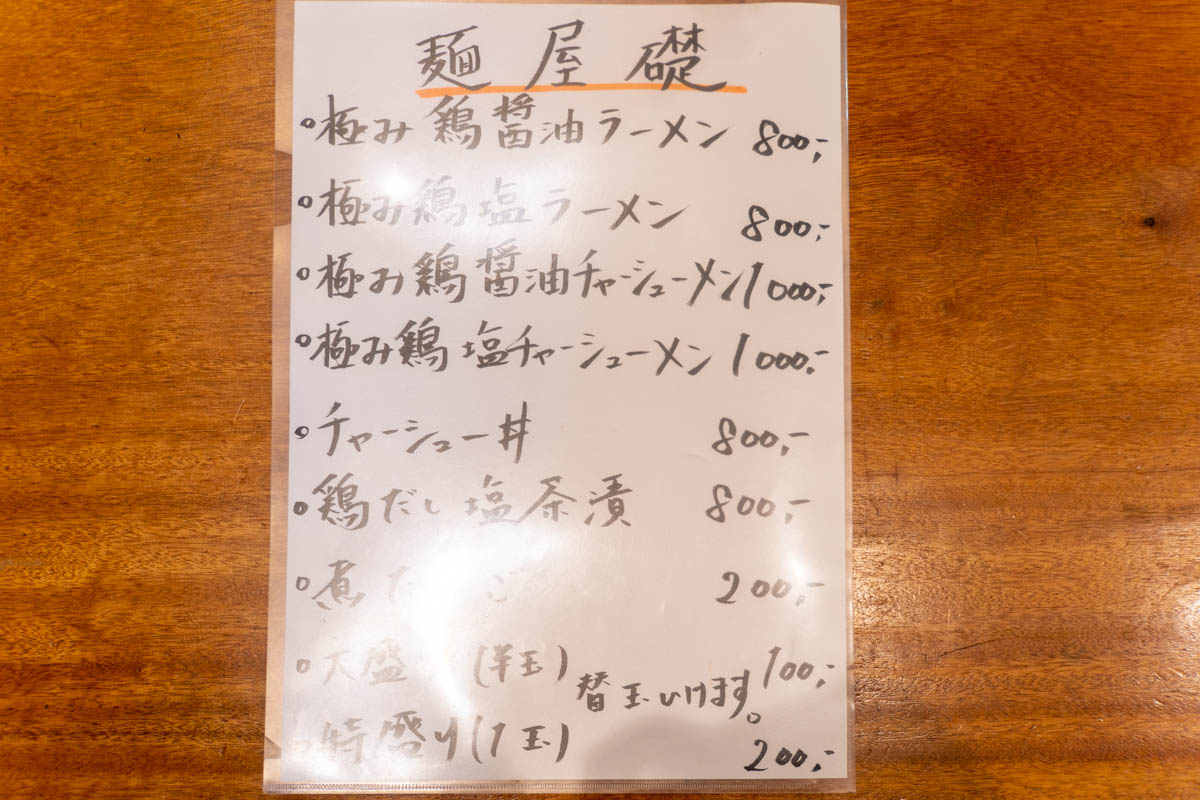 麺屋礎
極み鶏醤油ラーメン 800,-
極み鶏塩ラーメン 800,-
極み鶏醤油チャーシューメン 1000,-
極み鶏塩チャーシューメン 1000,-
チャーシュー丼 800,-
鶏だし塩茶漬 800,-
煮た 200,-
大盛 (半玉) 100,-
替玉いけます。
特盛り(1玉) 200,-